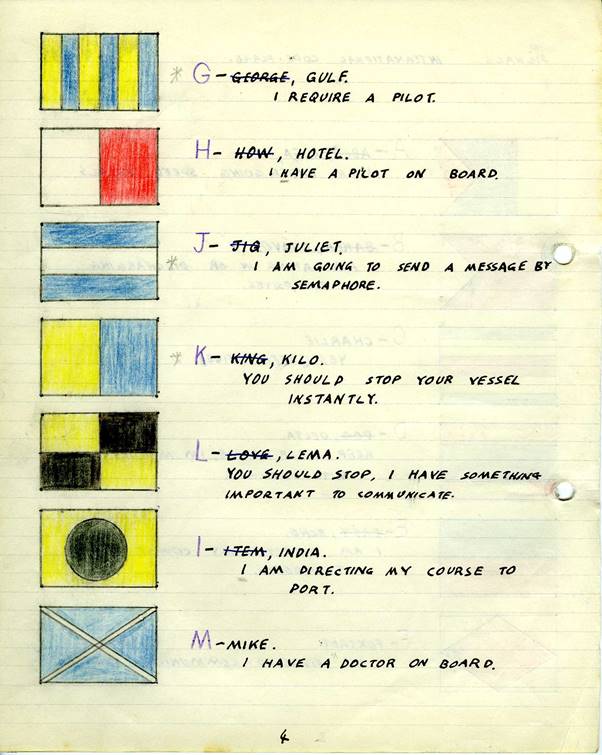 * G - GEORGE, GULF.
I REQUIRE A PILOT.
H - HOW, HOTEL.
I HAVE A PILOT ON BOARD.
J - JIG, JULIET.
* I AM GOING TO SEND A MESSAGE BY
SEMAPHORE.
* K - KING, KILO.
YOU SHOULD STOP YOUR VESSEL
INSTANTLY.
L - LOVE, LEMA.
YOU SHOULD STOP, I HAVE SOMETHING
IMPORTANT TO COMMUNICATE.
I - ITEM, INDIA.
I AM DIRECTING MY COURSE TO
PORT.
M - MIKE.
I HAVE A DOCTOR ON BOARD.
4